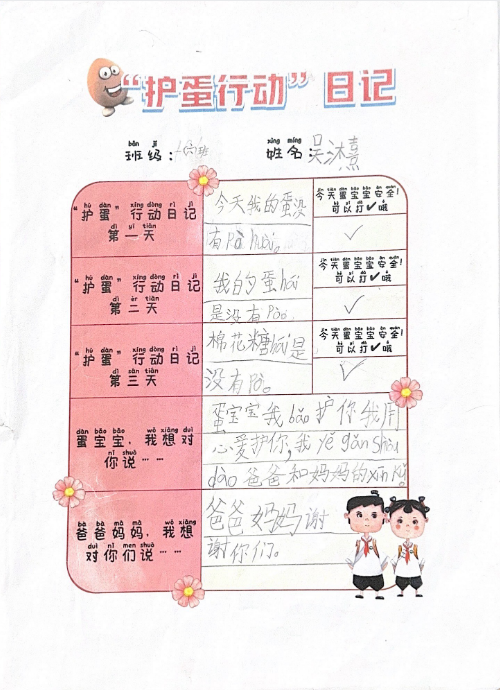 “护蛋行动”日记
bān jí xìng míng
班级：一六班 姓名：吴沐熹
“护蛋”行动日记
hù dàn xíng dòng rì jì
dì yī tiān
第一天
今天我的蛋没
有pò huài。
jīn tiān dàn bǎo bǎo ān quán
今天蛋宝宝安全！
kě yǐ dǎ ò
可以打✓哦
✓
hù dàn xíng dòng rì jì
“护蛋”行动日记
dì èr tiān
第二天
我的蛋hái
是没有pò。
jīn tiān dàn bǎo bǎo ān quán
今天蛋宝宝安全！
kě yǐ dǎ ò
可以打✓哦
✓
hù dàn xíng dòng rì jì
“护蛋”行动日记
dì sān tiān
第三天
棉花糖hái是
没有pò。
jīn tiān dàn bǎo bǎo ān quán
今天蛋宝宝安全！
kě yǐ dǎ ò
可以打✓哦
✓
dàn bǎo bǎo wǒ xiǎng duì
蛋宝宝，我想对
nǐ shuō
你说……
蛋宝宝我bǎo护你我用
心爱护你，我yě gǎn shòu
dào爸爸和妈妈的xīn kǔ。
bà ba mā ma wǒ xiǎng
爸爸妈妈，我想
duì nǐ men shuō
对你们说……
爸爸妈妈谢
谢你们。